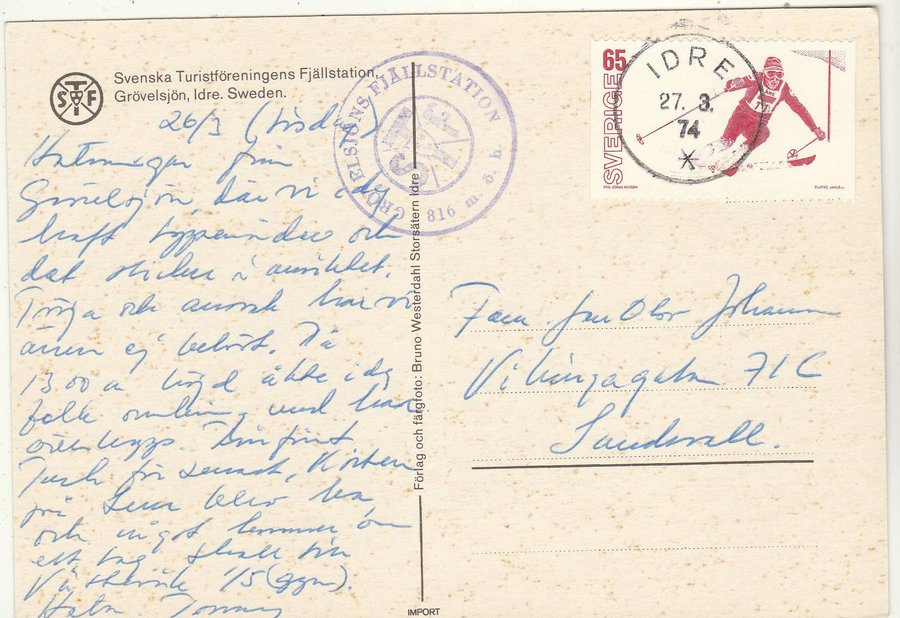 Svenska Turistföreningens Fjällstation,
Grövelsjön, Idre. Sweden.
STF
GRÖVELSJÖNS FJÄLLSTATION
816 m. ö. h.
STF
65
SVERIGE
STIG GÖRAN NILSSON
IDRE
27. 3.
74
26/3 (tisdag)
från
Grövelsjön, Där vi idag
haft toppenväder och
det sticker i ansiktet.
och har vi
ännu ej behövt. På
13.00 m höjd åkte idag
folk omkring med bar
överkropp. Din fint
Tack för senast,
på blev bra
och något kommer om
ett tag. Skall till
1/5 (gym).
Tommy
Förlag och färgfoto: Bruno Westerdahl Storsätern Idre
IMPORT
Fam. Jan Olov Johansson
Vikingagatan 71 C
Sundsvall.